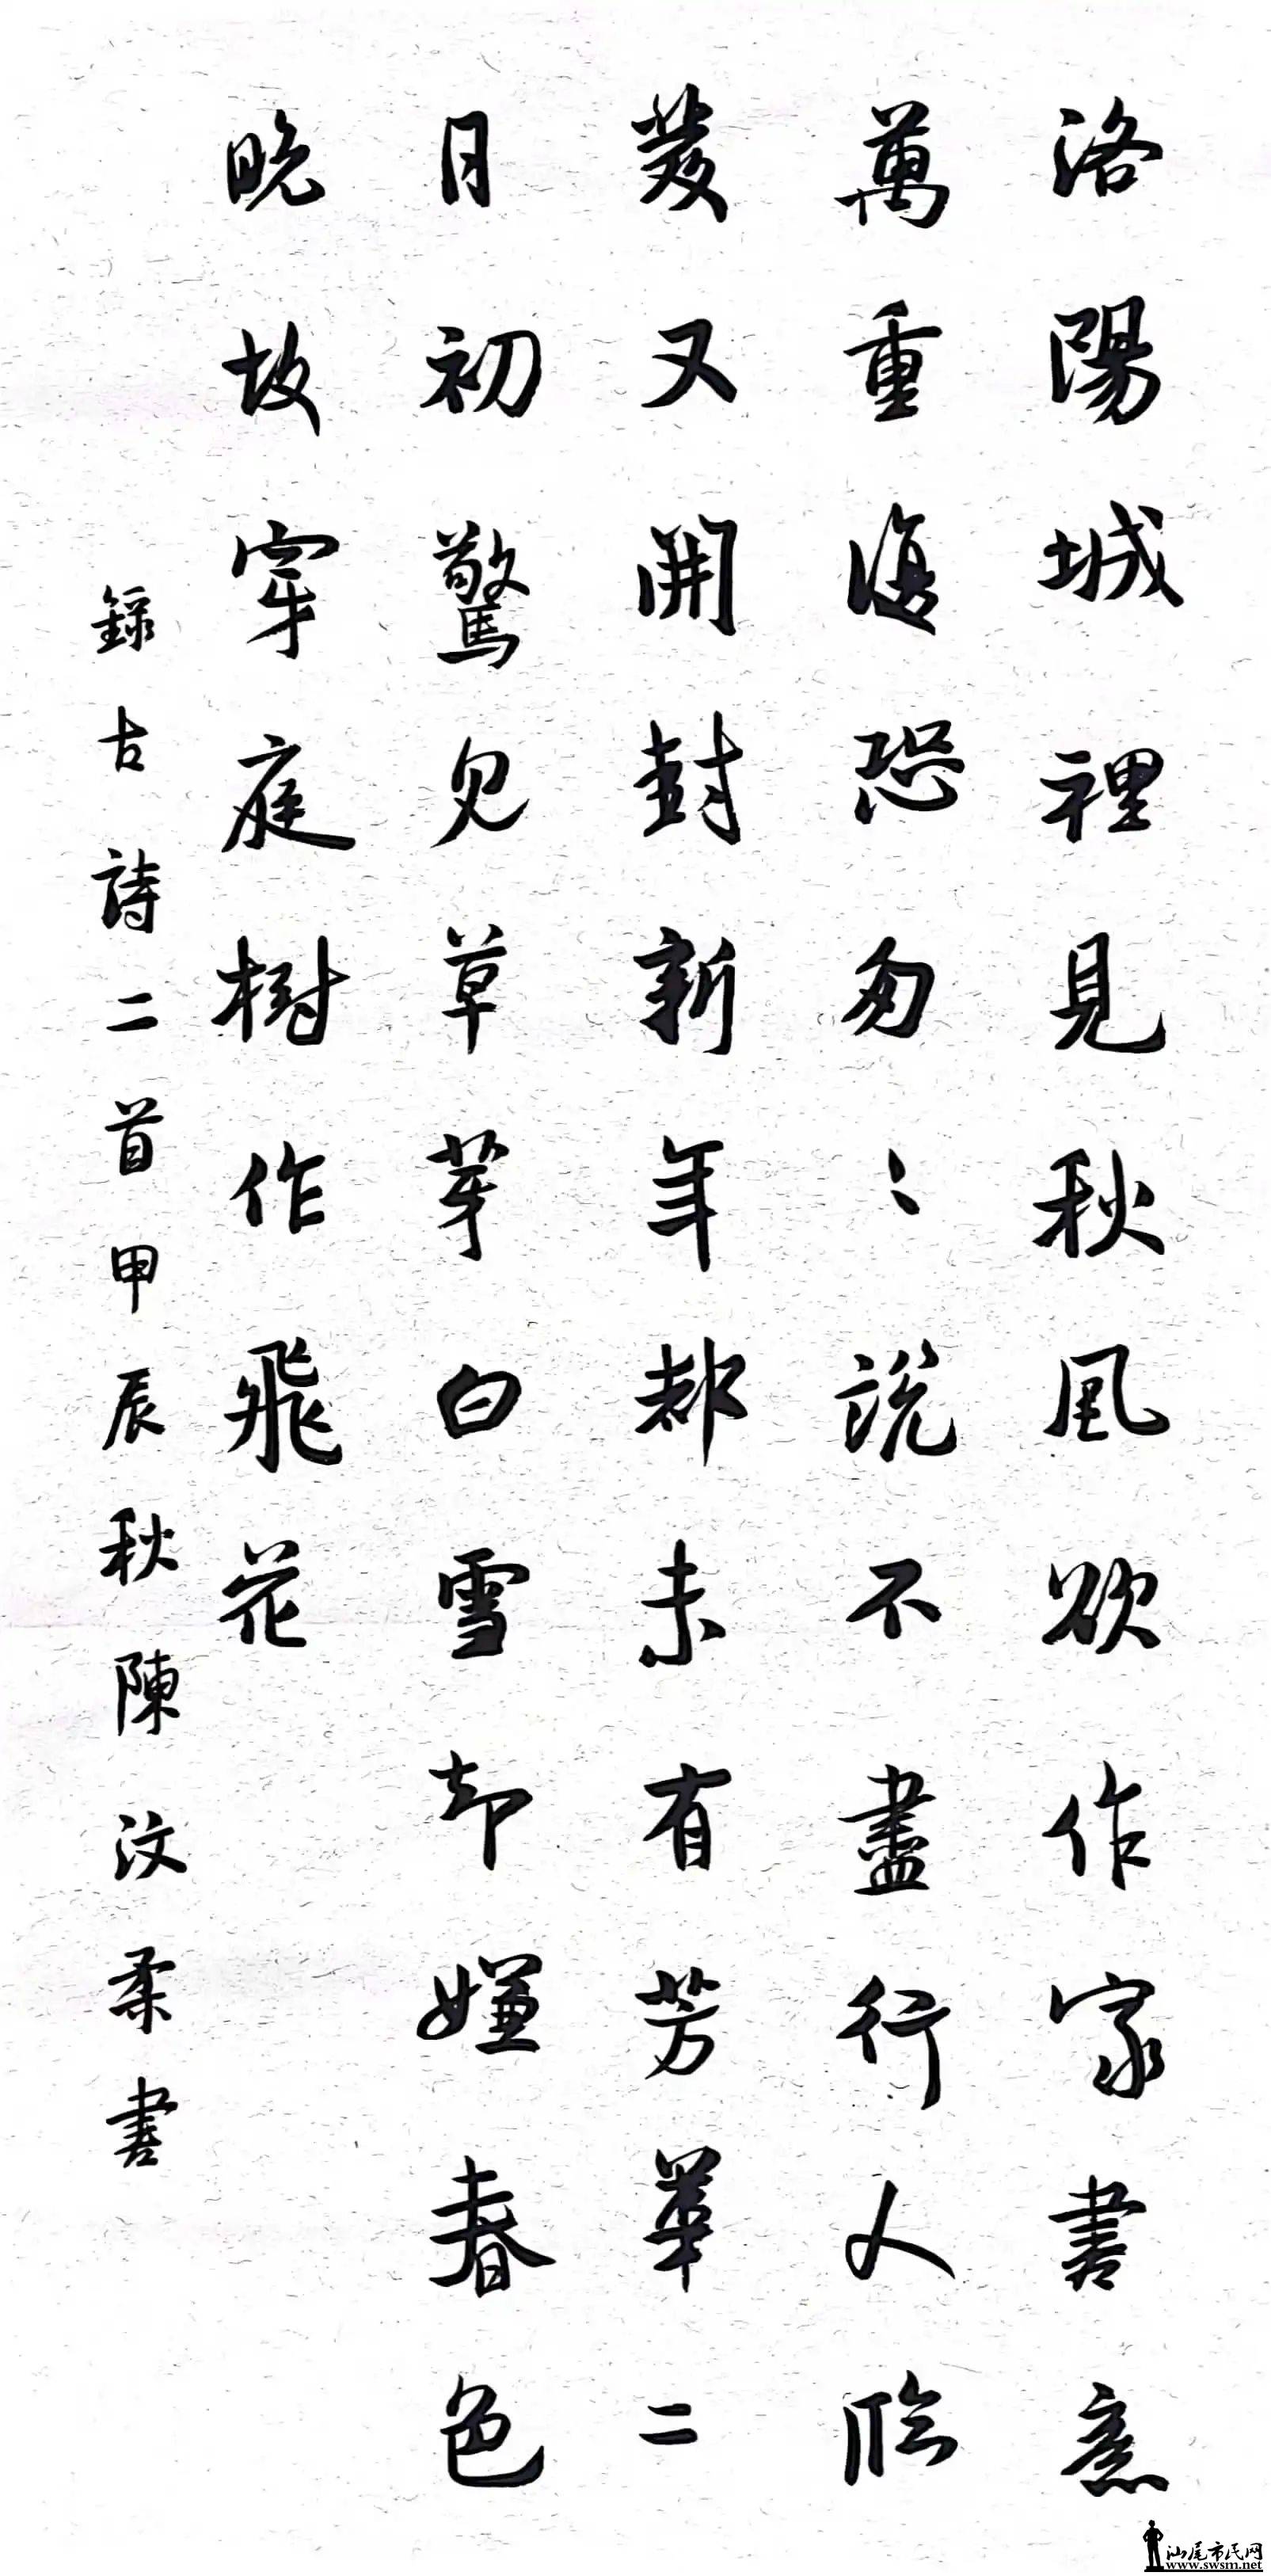 洛陽城裡見秋風欲作家書意
萬重復恐匆〻說不盡行人臨
發又開封新年都未有芳華二
月初驚見草芽白雪却嫌春色
晚故穿庭樹作飛花
錄古詩二首甲辰秋陳汶柔書
汕尾市民网
www.swsm.net